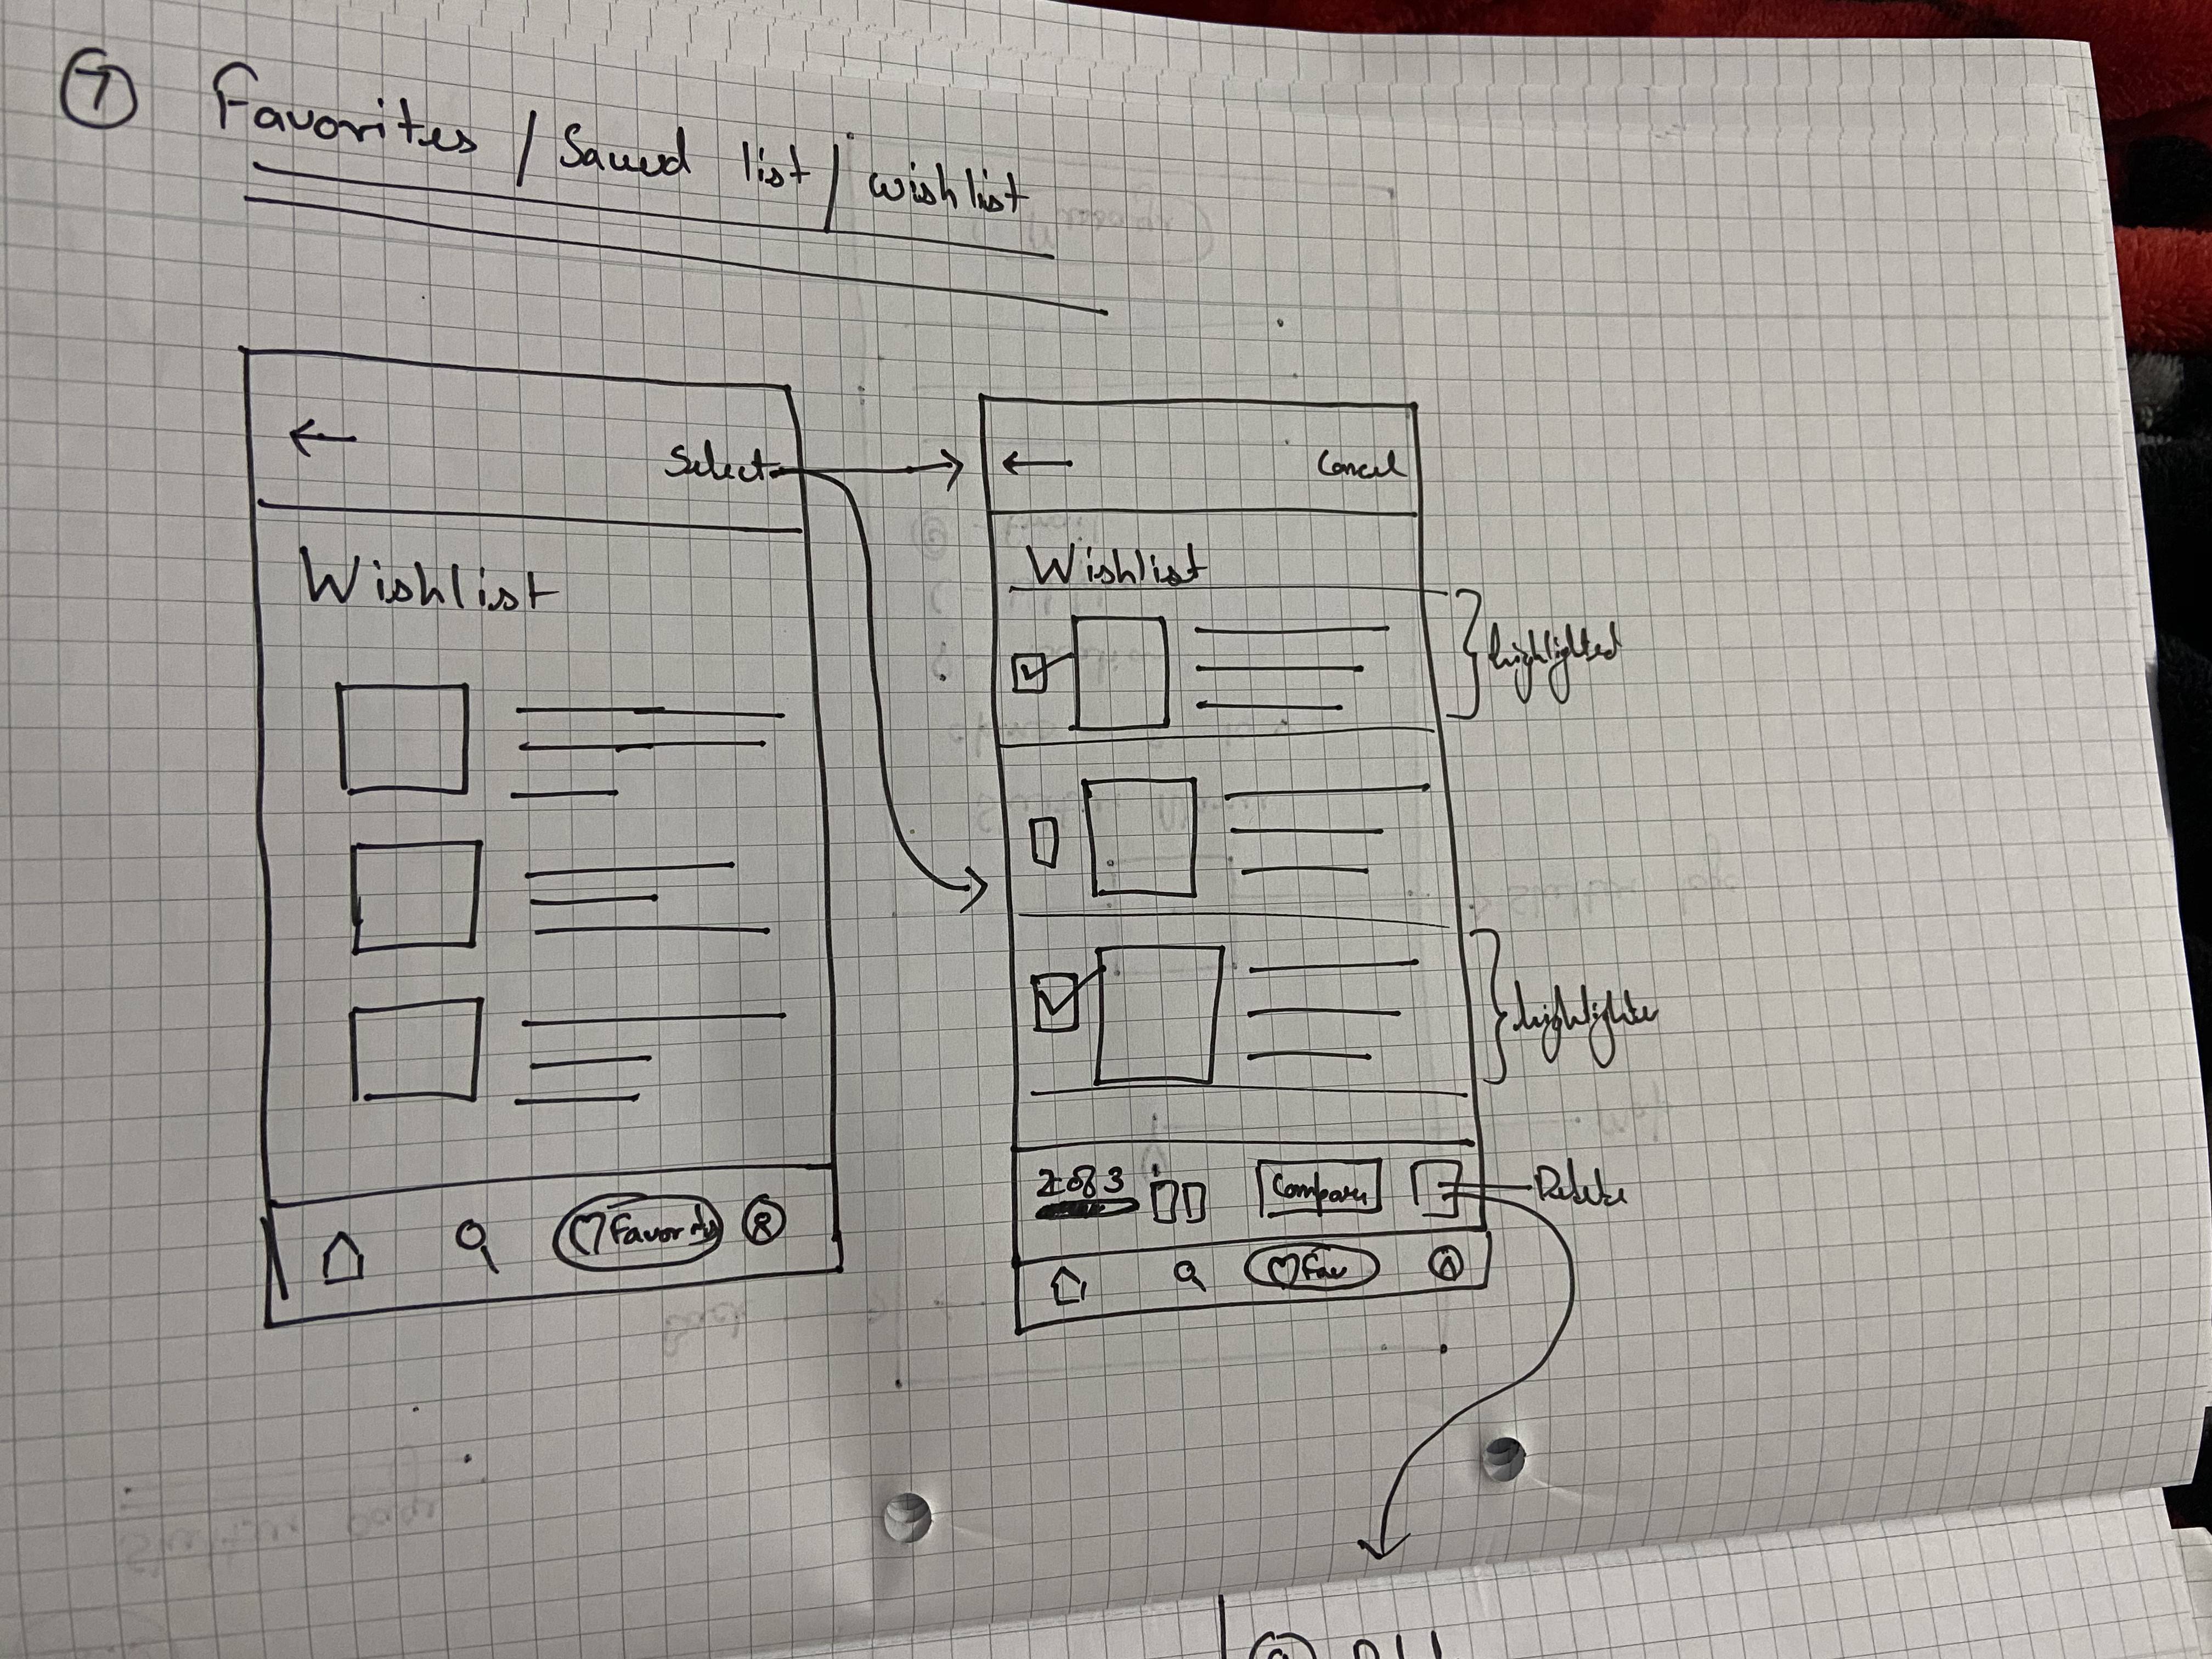 7 Favorites / Saved list / wishlist
← Select
Wishlist
Favorites
← Cancel
Wishlist
highlighted
highlighter
2 of 3 Compare Delete
Fav